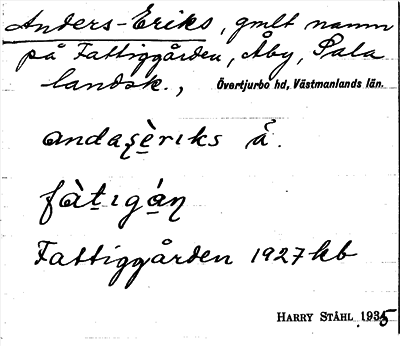 Anders-Eriks, gmlt namn
på Fattiggården, Åby, Sala
landsk., Övertjurbo hd, Västmanlands län.
andaʂèrıks å.
fàt̠ıgáṇ
Fattiggården 1927 kb
HARRY STÅHL 1935